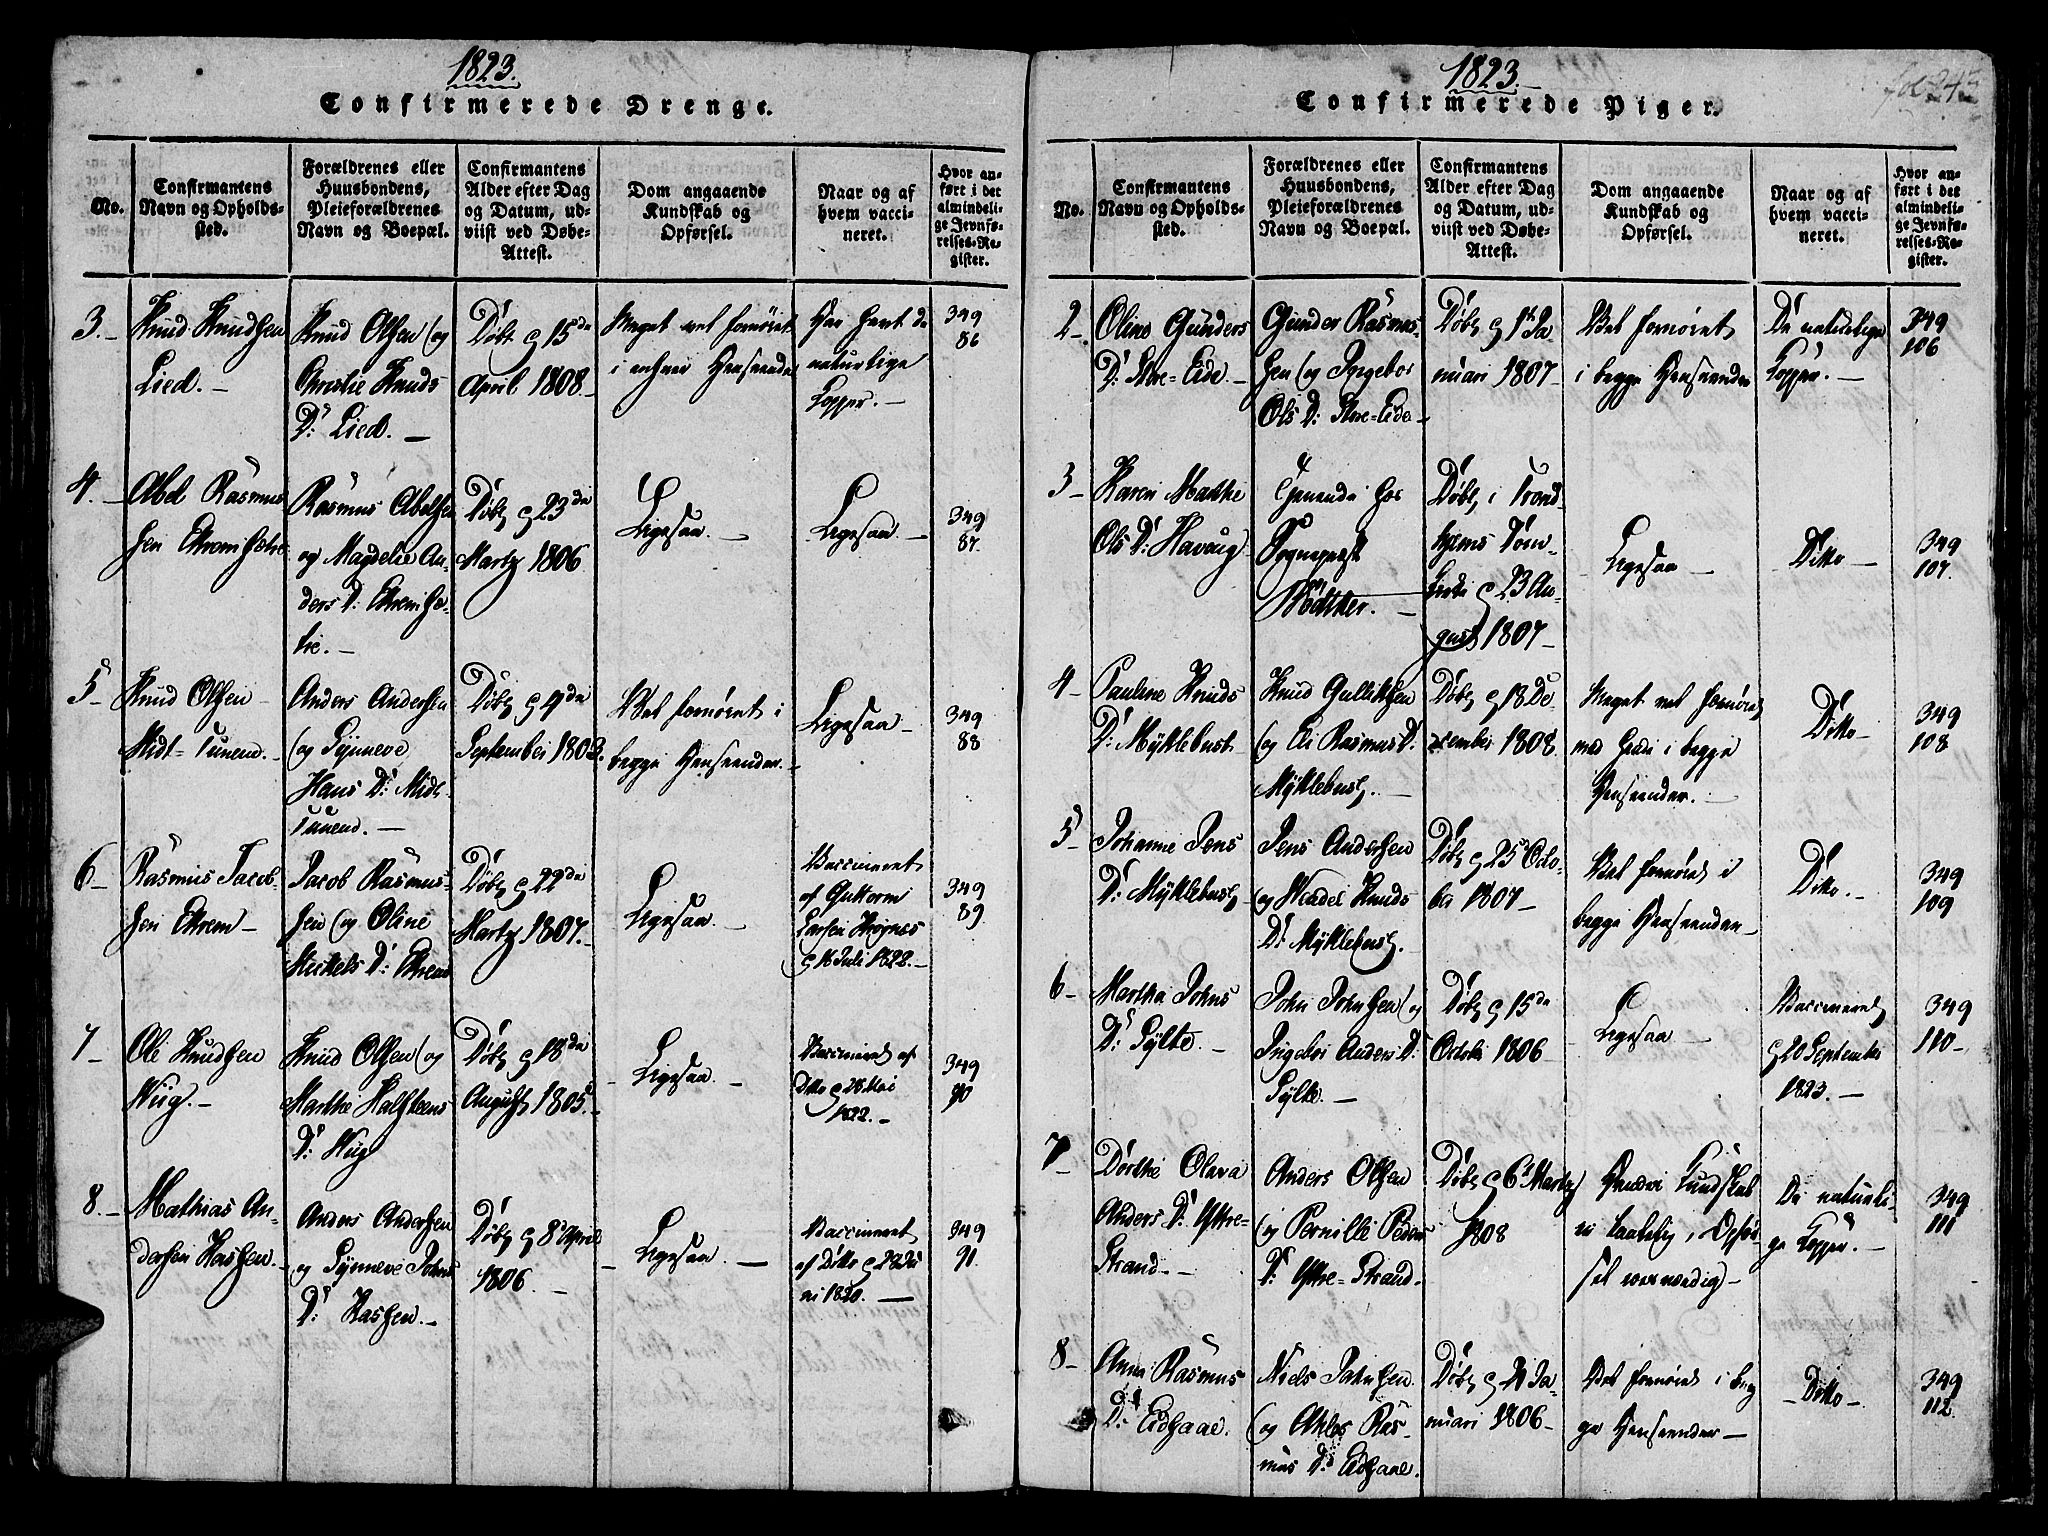 1823.
Confirmerede Drenge.
No.
Confirmantens
Navn og Opholds-
sted.
Forældrenes eller
Huusbondens,
Pleieforældrenes
Navn og Boepæl.
Confirmantens
Alder efter Dag
og Datum, ud-
viist ved Døbe-
Attest.
Dom angaaende
Kundskab og
Opførsel.
Naar og af
hvem vacci-
neret.
Hvor an-
ført i det
almindeli-
ge Jevnfø-
relses-Re-
gister.
3.
Knud Knudsen
Lied.
Knud Olsen og
Christie Knuds
Dr Lied.
Døbt d 15de
April 1808.
Meget vel fornøiet
i enhver Henseende
Har havt de
naturlige
Kopper.
349
86
4.
Abel Rasmus
sen Ekremsætre
Rasmus Abelsen
og Magdelie An-
ders Dr Ekremsæ-
tre.
Døbt d 23de
Marty 1806
Ligesaa.
Ligesaa.
349
87.
5
Knud Olsen
Midt-Tunem.
Anders Andersen
og Synneve
Hans Dr Midt-
Tunem.
Døbt d 4de
September 1803.
Vel fornøiet i
begge Henseender.
Ligesaa
349
88
6
Rasmus Jacob-
sen Ekrem
Jacob Rasmus-
sen og Oline
Mickels Dr Ekrem
Døbt d 22de
Marty 1807.
Ligesaa.
Vaccineret
af Guttorm
Larsen
d 16 Juli 1822.
349
89
7
Ole Knudsen
Hug.
Knud Olsen og
Marthe Halsteens
Dr Hug
Døbt d 18de
August 1805.
Ligesaa.
Vaccineret af
Ditto d 28 Mai
1822.
349
90
8.
Mathias An-
dersen Hassen.
Anders Andersen
og Synneve Johns
Dr Hassen.
Døbt d 8d April
1806.
Ligesaa.
Vaccineret
af Ditto d 28 Ju
ni 1820.
349
91.
1823.
fol 243
Confirmerede Piger.
No.
Confirmantens
Navn og Opholds-
sted.
Forældrenes eller
Huusbondens,
Pleieforældrenes
Navn og Boepæl.
Confirmantens
Alder efter Dag
og Datum, ud-
viist ved Døbe-
Attest.
Dom angaaende
Kundskab og
Opførsel.
Naar og af
hvem vacci-
neret.
Hvor an-
ført i det
almindeli-
ge Jevnfø-
relses-Re-
gister.
2.
Oline Gunders
Dr Store-Eide.
Gunder Rasmus-
sen og Ingebor
Ols Dr Store-Eide
Døbt d 1ste Ja
nuari 1807
Vel fornøiet
i begge Henseender
De naturlige
Kopper.
349
106
3
Karen Mathe
Ols Dr Havaug
Tjenende hos
Sogneprest
Bødtker.
Døbt i Trond-
hjems Dom-
kirke d 23 Au-
gust 1807
Ligesaa
Ditto
349
107.
4
Pauline Knuds
Dr Myklebust
Knud Gullicksen
og Eli Rasmus Dr
Myklebust.
Døbt d 18 De-
cember 1808.
Meget vel fornøiet
med hende i begge
Henseender.
Ditto
349
108
5
Johanne Jens
Dr Myklebust
Jens Andersen
og Wendel Knuds
Dr Myklebust.
Døbt d 25 Octo-
ber 1807
Vel fornøiet i
begge Henseender
Ditto.
349
109
6
Martha Johns
Dr Sylte.
John Johnsen og
Ingebor Anders Dr
Sylte.
Døbt d 15de
October 1806
Ligesaa
Vaccineret
d 20 September
1823.
349
110
7
Dorthe Olava
Anders Dr Yttre-
Strand
Anders Olsen
og Pernille Peders
Dr Yttre-Strand
Døbt d 6d Marty
1808
Hendes Kundskab
er taalelig, Opfør-
sel værværdig
De naturli-
ge Kopper.
349
111
8
Anne Rasmus
Dr Eidsaae.
Niels Johnsen
og Ahlos Ras-
mus Dr Eidsaae.
Døbt d 21 Ja-
nuari 1806
Vel fornøiet i beg
ge Henseender
Ditto
349
112.